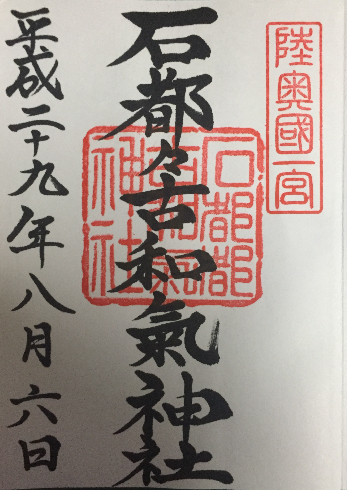 陸奥國一宮
石都々古和氣神社
石都都
古和氣
神社
平成二十九年八月六日